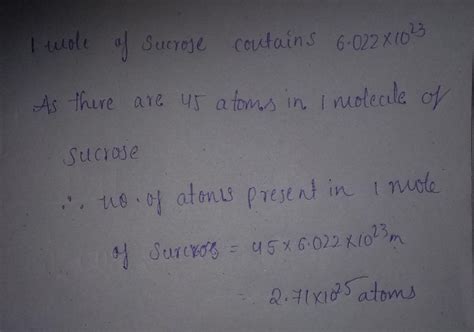 1 mole of sucrose contains 6.022×10²³
As there are 45 atoms in 1 molecule of
sucrose
∴ no. of atoms present in 1 mole
of Surcros = 45×6.022×10²³m
= 2.71×10²⁵ atoms